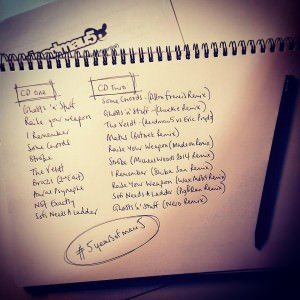 CD One
Ghosts 'n' Stuff
Raise your weapon
I Remember
Some Chords
Strobe
The Veldt
Brazil (2nd Edit)
Aural Psynapse
Not Exactly
Sofi Needs A Ladder
CD Two
Some Chords - (Dillon Francis Remix)
Ghosts 'n' Stuff - (Chuckie Remix)
The Veldt - (deadmau5 vs Eric Prydz)
Maths (Botnek Remix)
Raise Your Weapon (Madeon Remix)
Strobe (Michael Woods 2014 Remix)
I Remember (Shiba San Remix)
Raise Your Weapon (Wax Motif Remix)
Sofi Needs A Ladder (Pig&Dan Remix)
Ghosts 'n' Stuff (Nero Remix)
#5yearsofmau5